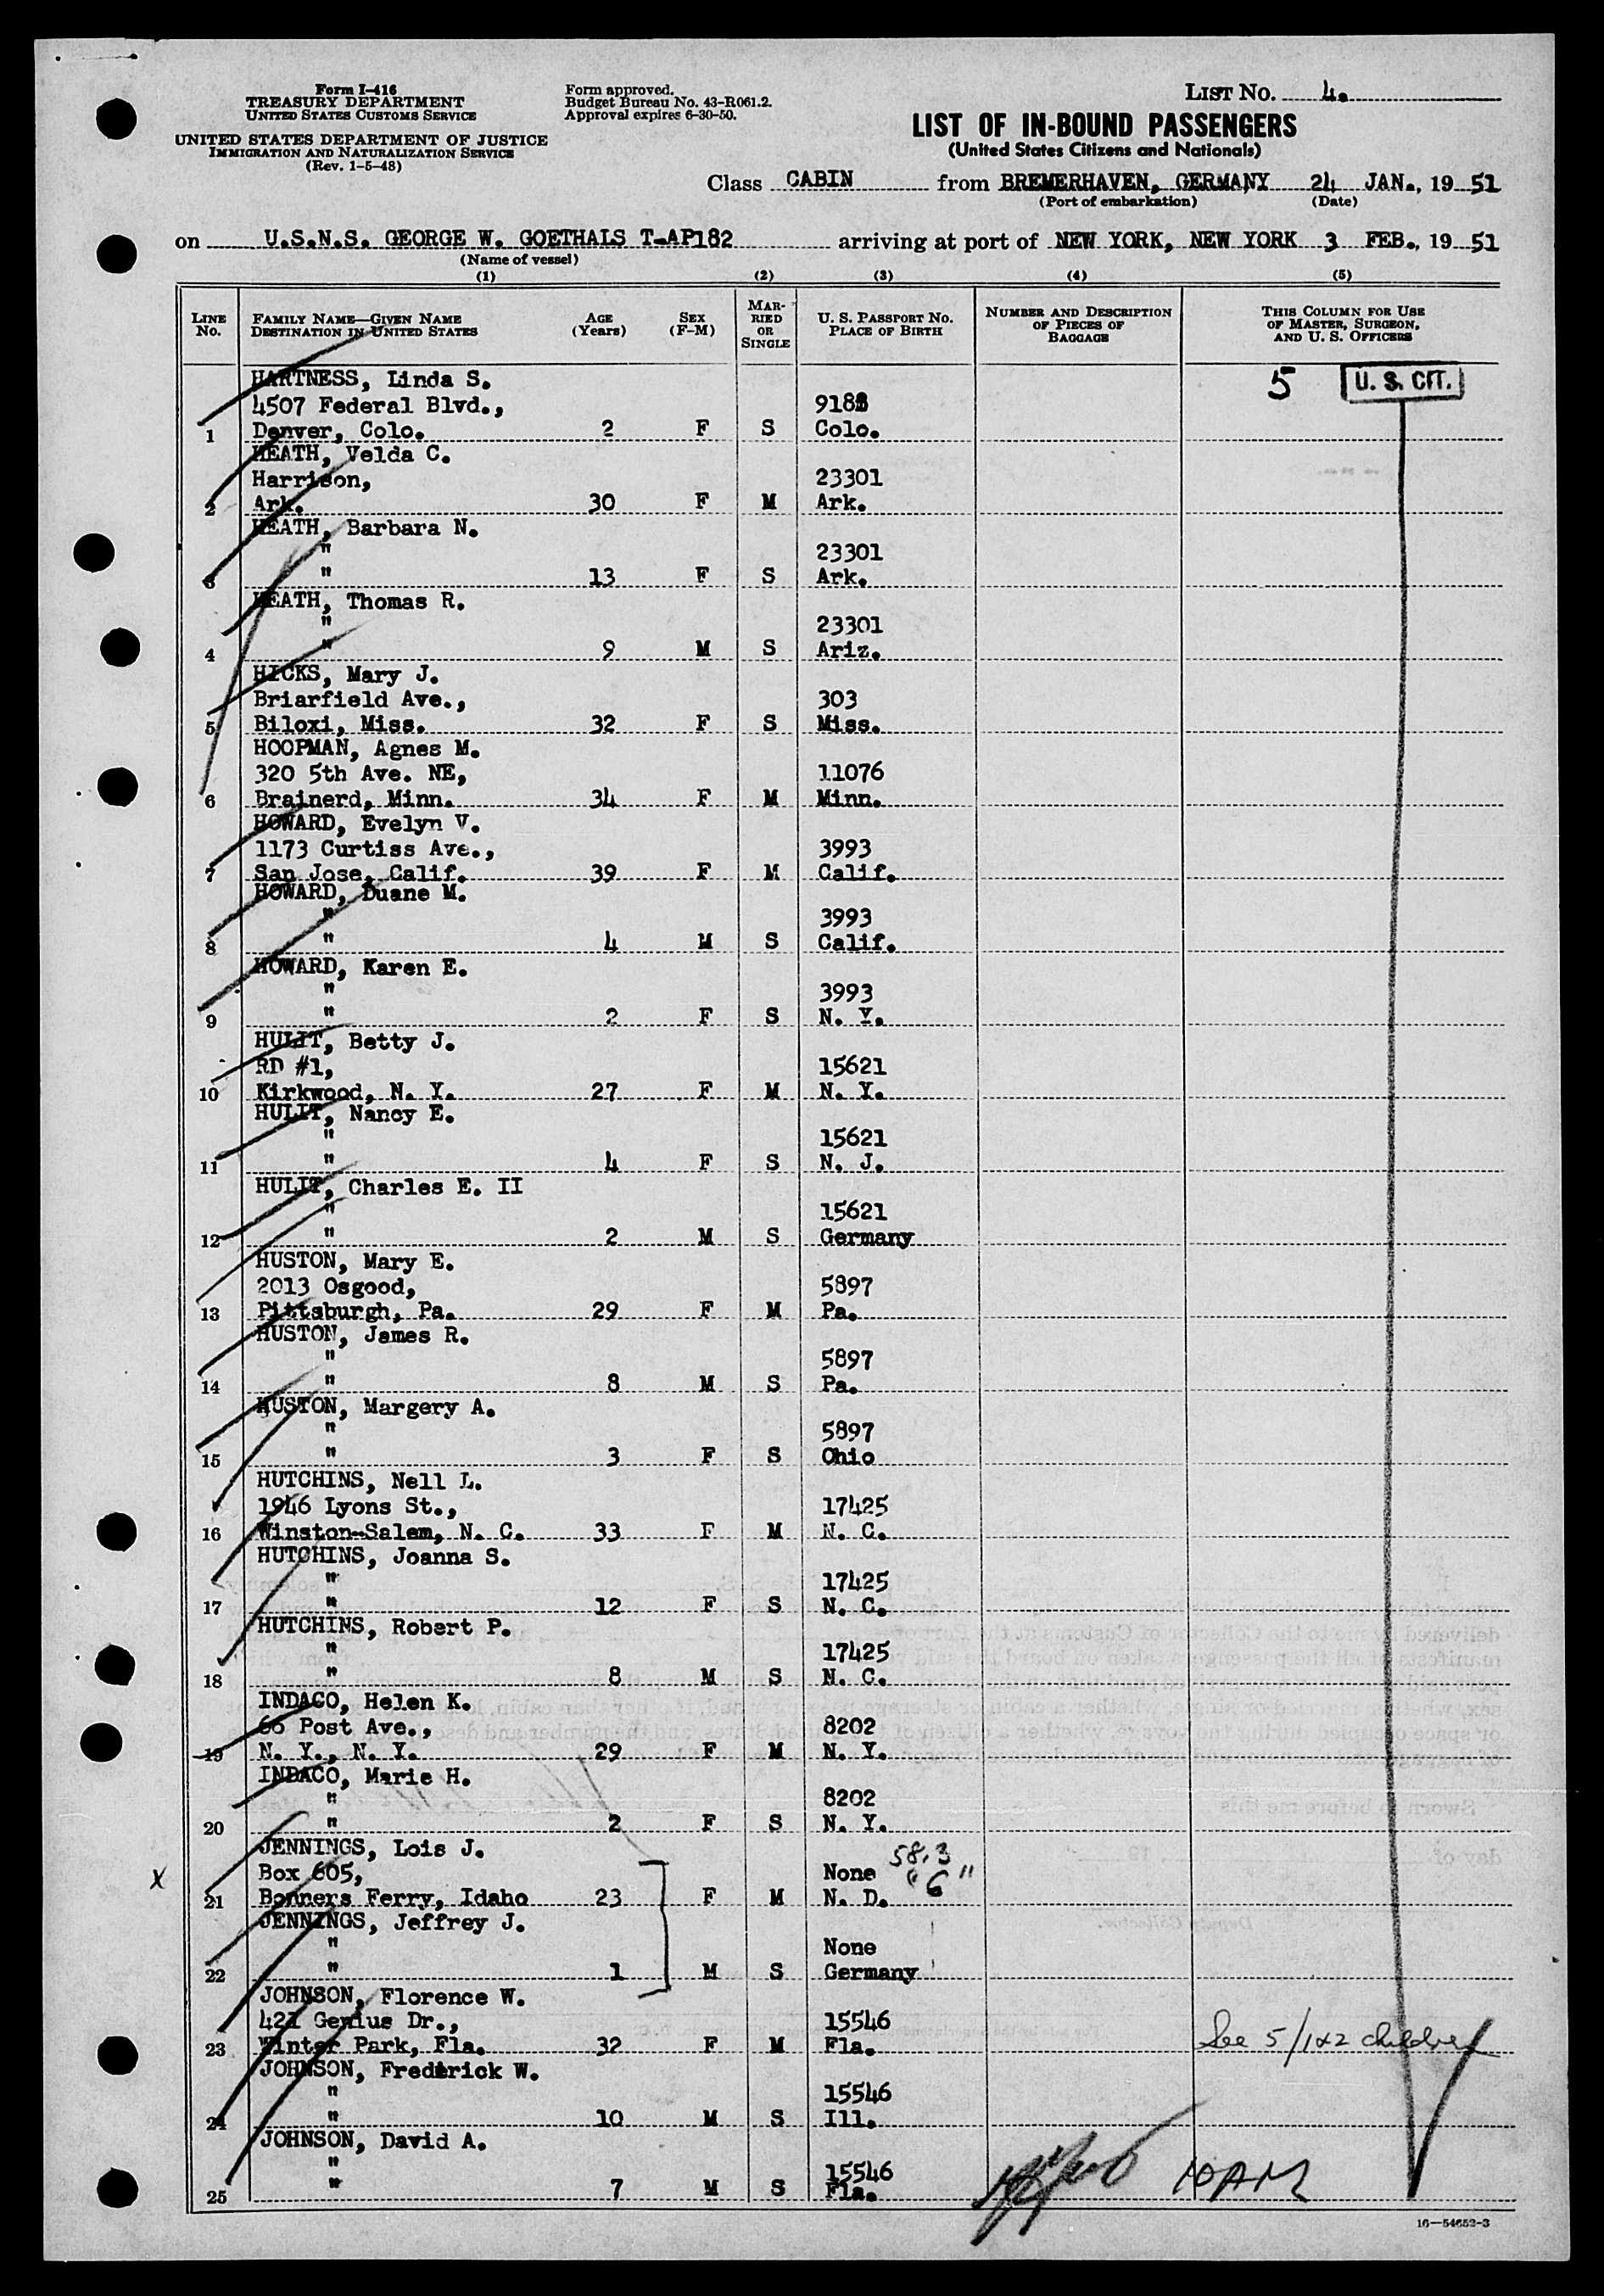 Form I-416
TREASURY DEPARTMENT
UNITED STATES CUSTOMS SERVICE
UNITED STATES DEPARTMENT OF JUSTICE
IMMIGRATION AND NATURALIZATION SERVICE
(Rev. 1-5-48)
Form approved.
Budget Bureau No. 43-R061.2.
Approval expires 6-30-50.
LIST NO. 4.
LIST OF IN-BOUND PASSENGERS
(United States Citizens and Nationals)
Class CABIN from BREMERHAVEN, GERMANY 24 JAN., 19 51
(Port of embarkation) (Date)
on U.S.N.S. GEORGE W. GOETHALS T-AP182 arriving at port of NEW YORK, NEW YORK 3 FEB., 19 51
(Name of vessel)
(1) (2) (3) (4) (5)
LINE No. FAMILY NAME—GIVEN NAME DESTINATION IN UNITED STATES AGE (Years) SEX (F-M) MARRIED OR SINGLE U. S. PASSPORT NO. PLACE OF BIRTH NUMBER AND DESCRIPTION OF PIECES OF BAGGAGE THIS COLUMN FOR USE OF MASTER, SURGEON, AND U. S. OFFICERS
HARTNESS, Linda S. 5 U. S. CIT.
4507 Federal Blvd.,
1 Denver, Colo. 2 F S Colo.
HEATH, Velda C.
Harrison, 23301
2 Ark. 30 F M Ark.
HEATH, Barbara N.
" 23301
3 " 13 F S Ark.
HEATH, Thomas R.
" 23301
4 " 9 M S Ariz.
HICKS, Mary J.
Briarfield Ave., 303
5 Biloxi, Miss. 32 F S Miss.
HOOPMAN, Agnes M.
320 5th Ave. NE, 11076
6 Brainerd, Minn. 34 F M Minn.
HOWARD, Evelyn V.
1173 Curtiss Ave., 3993
7 San Jose, Calif. 39 F M Calif.
HOWARD, Duane M.
" 3993
8 " 4 M S Calif.
HOWARD, Karen E.
" 3993
9 " 2 F S N. Y.
HULIT, Betty J.
RD #1, 15621
10 Kirkwood, N. Y. 27 F M N. Y.
HULIT, Nancy E.
" 15621
11 " 4 F S N. J.
HULIT, Charles E. II
" 15621
12 " 2 M S Germany
HUSTON, Mary E.
2013 Osgood, 5897
13 Pittsburgh, Pa. 29 F M Pa.
HUSTON, James R.
" 5897
14 " 8 M S Pa.
HUSTON, Margery A.
" 5897
15 " 3 F S Ohio
HUTCHINS, Nell L.
1946 Lyons St., 17425
16 Winston-Salem, N. C. 33 F M N. C.
HUTCHINS, Joanna S.
" 17425
17 " 12 F S N. C.
HUTCHINS, Robert P.
" 17425
18 " 8 M S N. C.
INDACO, Helen K.
66 Post Ave., 8202
19 N. Y., N. Y. 29 F M N. Y.
INDACO, Marie H.
" 8202
20 " 2 F S N. Y.
JENNINGS, Lois J. 58.3
X Box 605, None " 6 "
21 Bonners Ferry, Idaho 23 F M N. D.
JENNINGS, Jeffrey J.
" None
22 " 1 M S Germany
JOHNSON, Florence W.
421 Genius Dr., 15546
23 Winter Park, Fla. 32 F M Fla. See 5/1&2 children
JOHNSON, Frederick W.
" 15546
24 " 10 M S Ill.
JOHNSON, David A.
" 15546
25 " 7 M S Fla.
16—54652-3